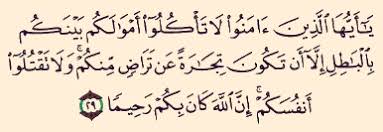 يَٰٓأَيُّهَا ٱلَّذِينَ ءَامَنُوا۟ لَا تَأۡكُلُوٓا۟ أَمۡوَٰلَكُم بَيۡنَكُم
بِٱلۡبَٰطِلِ إِلَّآ أَن تَكُونَ تِجَٰرَةً عَن تَرَاضٖ مِّنكُمۡۚ وَلَا تَقۡتُلُوٓا۟
أَنفُسَكُمۡۚ إِنَّ ٱللَّهَ كَانَ بِكُمۡ رَحِيمٗا ٢٩